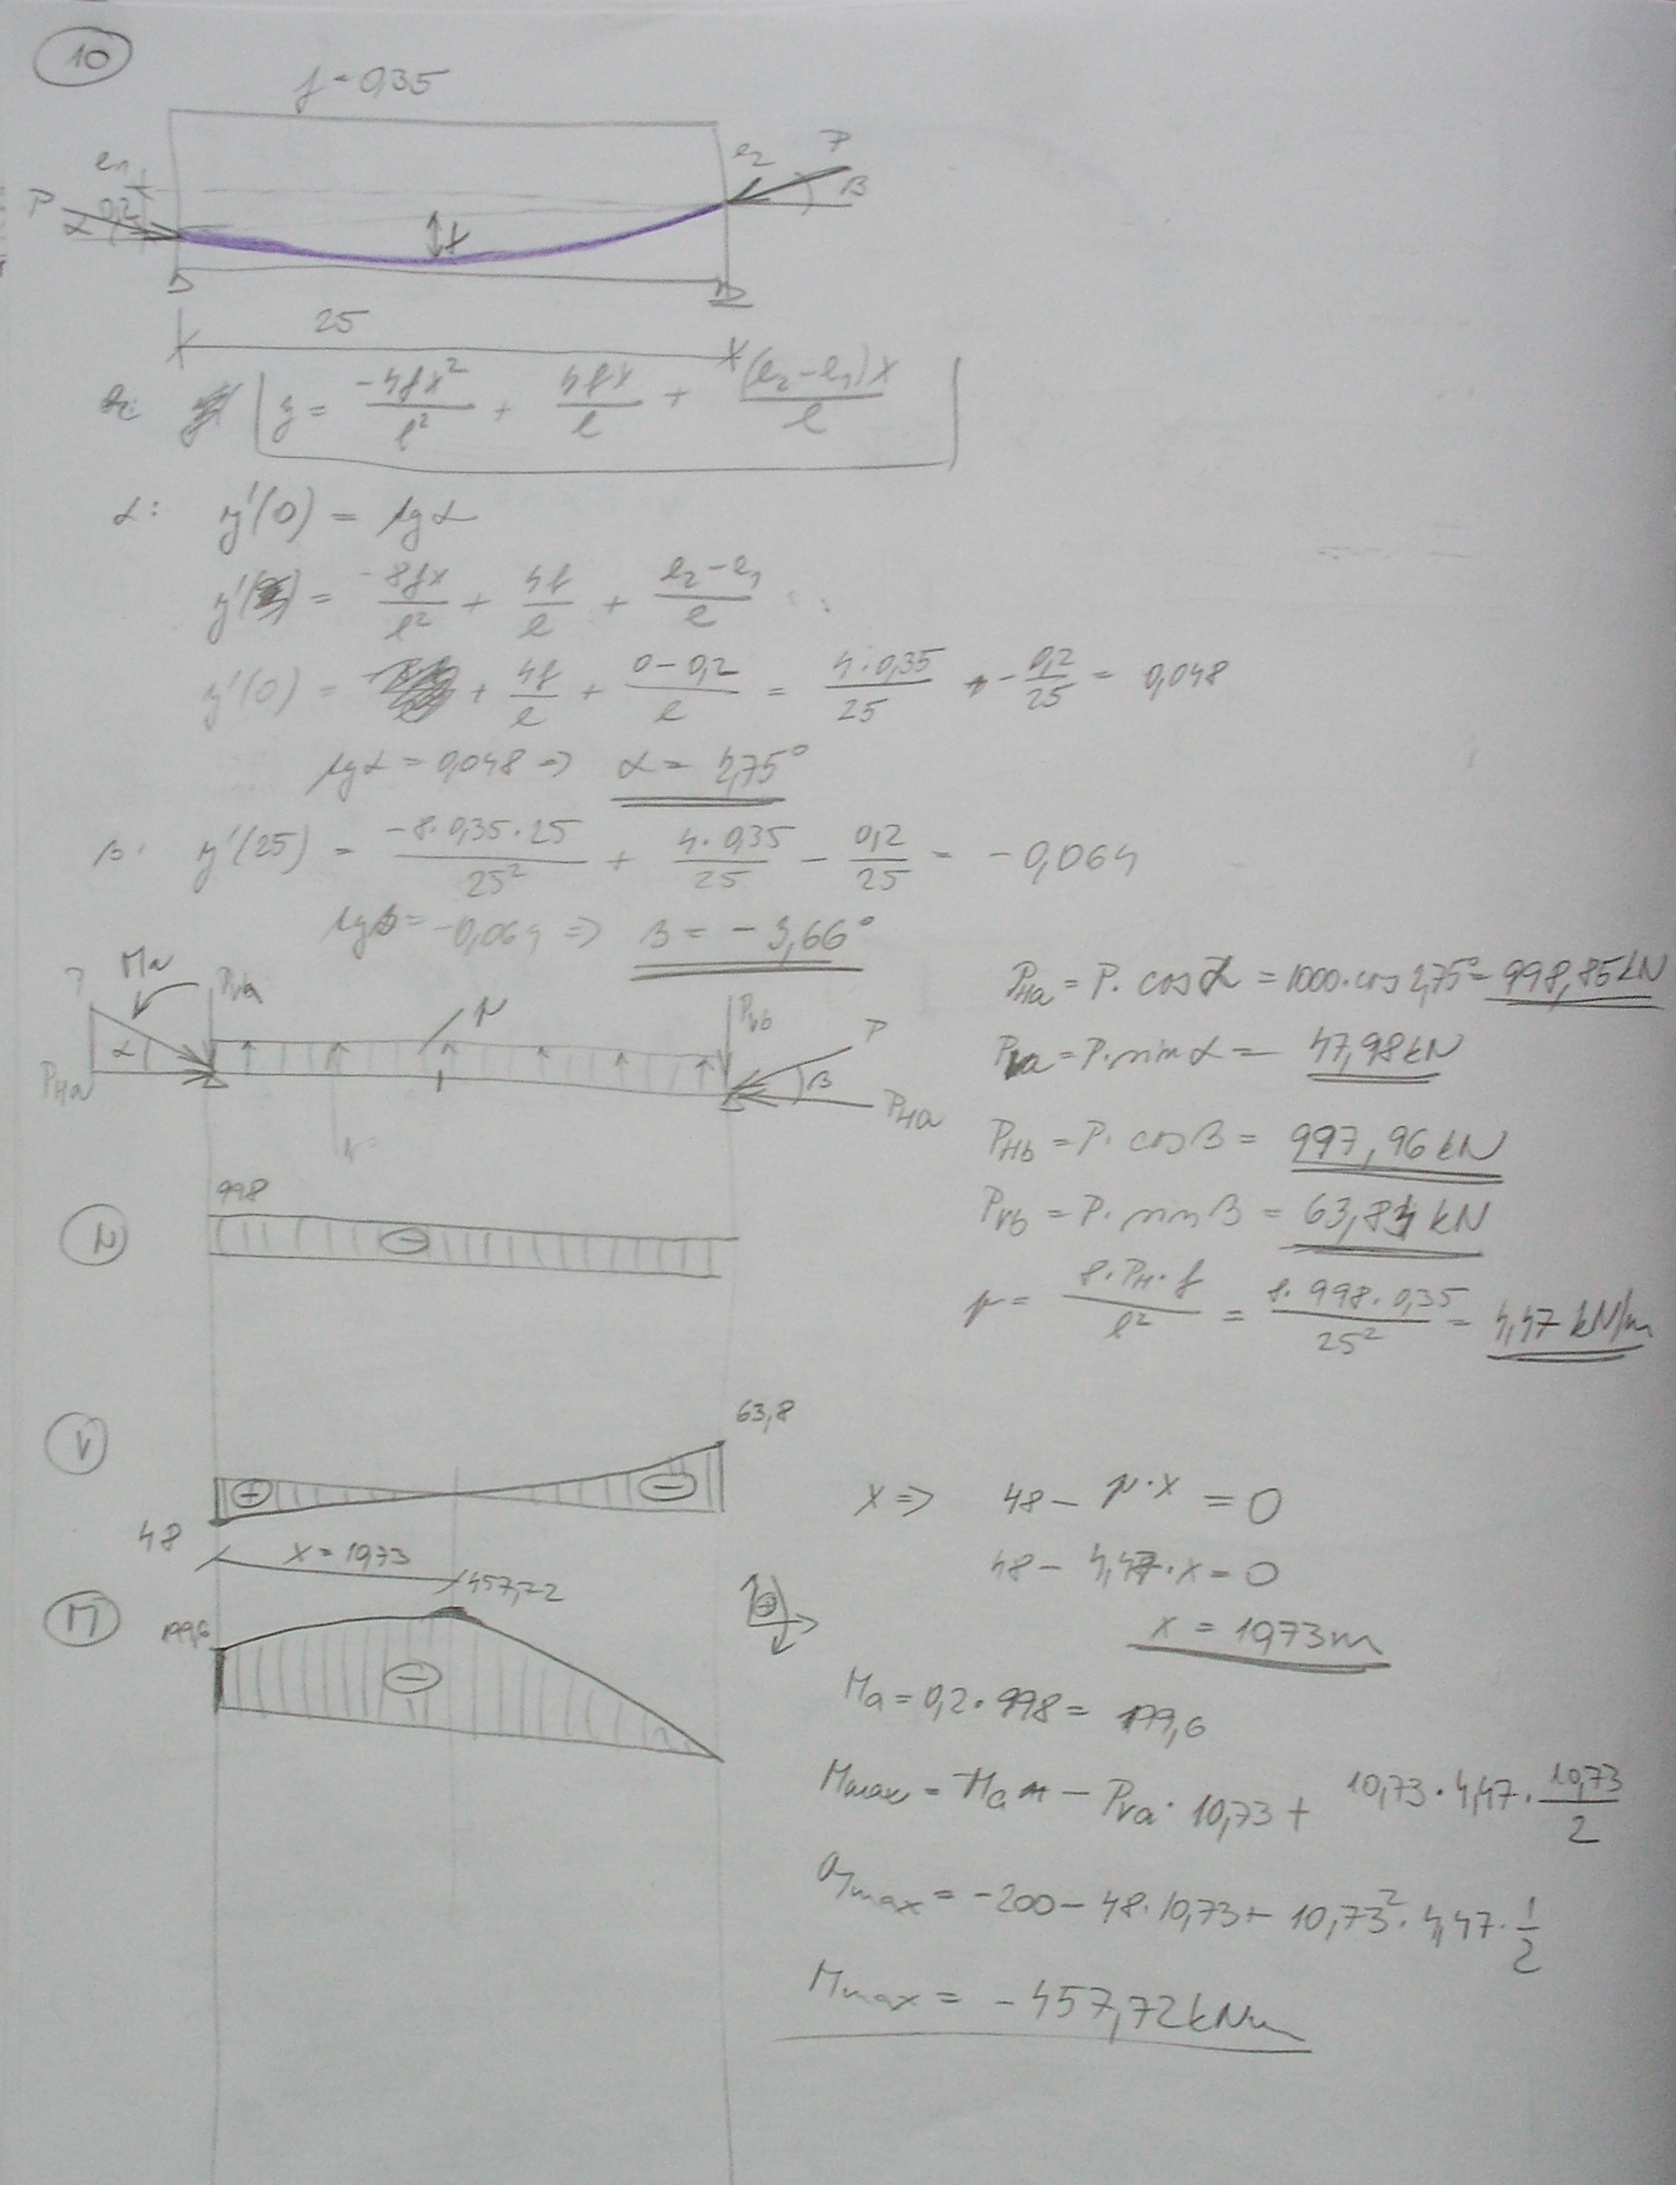 10
f = 0,35
e₁
e₂
P
P
α
0,2
f
β
25
y = -4fx²/l² + 4fx/l + (e₂-e₁)x/l
α: y'(0) = tgα
y'( ) = -8fx/l² + 4f/l + e₂-e₁/l
y'(0) = + 4f/l + 0-0,2/l = 4·0,35/25 - 0,2/25 = 0,048
tgα = 0,048 => α = 2,75°
β: y'(25) = -8·0,35·25/25² + 4·0,35/25 - 0,2/25 = -0,064
tgβ = -0,064 => β = -3,66°
P
Ma
Pva
p
Pvb
P
α
β
PHa
PHa
PHa = P·cosα = 1000·cos2,75° = 998,85kN
Pva = P·sinα = 47,98kN
PHb = P·cosβ = 997,96kN
Pvb = P·sinβ = 63,84kN
p = 8·PH·f/l² = 8·998·0,35/25² = 4,47 kN/m
N
998
-
V
63,8
+
-
48
x = 10,73
x => 48 - p·x = 0
48 - 4,47·x = 0
x = 10,73m
M
199,6
457,72
-
+
Ma = 0,2·998 = 199,6
Mmax = -Ma - Pva·10,73 + 10,73·4,47·10,73/2
Mmax = -200 - 48·10,73 + 10,73²·4,47·1/2
Mmax = -457,72kNm